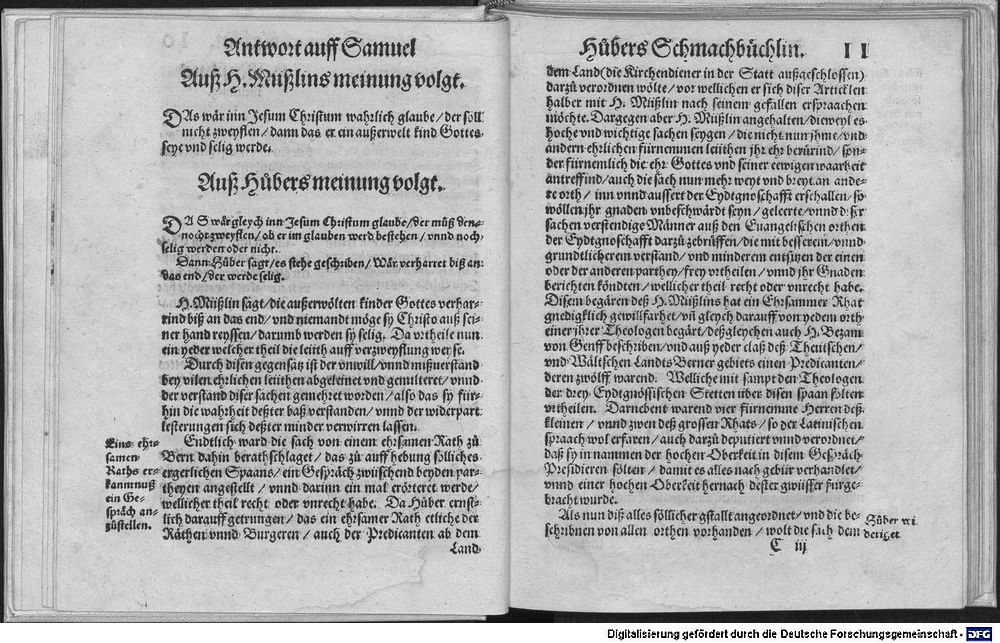 Antwort auff Samuel
Auß H. Müßlins meinung volgt.
DAs wär inn Jesum Christum wahrlich glaube / der soll
nicht zweyflen / dann das er ein außerwelt kind Gottes
seye vnd selig werde.
Auß Hübers meinung volgt.
DAS wär gleych inn Jesum Christum glaube / der müß den-
nocht zweyflen / ob er im glauben werd bestehen / vnnd noch
selig werden oder nicht.
Dann Hüber sagt / es stehe geschriben / Wär verharret biß an
das end / der werde selig.
H. Müßlin sagt / die außerwölten kinder Gottes verhar-
rind biß an das end / vnd niemandt möge sy Christo auß sei-
ner hand reyssen / darumb werden sy selig. Da vrtheile nun
ein yeder welcher theil die leüth auff verzweyflung weyse.
Durch disen gegensatz ist der vnwill / vnnd mißuerstand
bey vilen ehrlichen leüthen abgeleinet vnd gemilteret / vnnd
der verstand diser sachen gemehret worden / also das sy für-
hin die wahrheit deßter baß verstanden / vnnd der widerpart
lesterungen sich deßter minder verwirren lassen.
Eins ehr-
samen
Raths er-
kanntnuß
ein Ge-
spräch an-
zůstellen.
Endtlich ward die sach von einem ehrsamen Rath zů
Bern dahin berathschlaget / das zů auff hebung sölliches
ergerlichen Spaans / ein Gespräch zwüschend beyden par-
theyen angestellt / vnnd darinn ein mal erörteret werde /
wellicher theil recht oder vnrecht habe. Da Hüber ernst-
lich darauff getrungen / das ein ehrsamer Rath etliche der
Räthen vnnd Burgeren / auch der Predicanten ab dem
Land
Hübers Schmachbüchlin. 11
dem Land (die Kirchendiener in der Statt außgeschlossen)
darzů verordnen wölte / vor wellichen er sich diser Articklen
halber mit H. Müßlin nach seinem gefallen ersprachen
möchte. Dargegen aber H. Müßlin angehalten / dieweyl es
hoche vnd wichtige sachen seygen / die nicht nun jhme / vnd
andern ehrlichen fürnemmen leüthen jhr ehr berürind / son-
der fürnemlich die ehr Gottes vnd seiner eewigen waarheit
antreffind / auch die sach nun mehr weyt vnd breyt an ande-
re orth / inn vnnd aussert der Eydtgnoschafft erschallen / so
wöllen jhr gnaden vnbeschwärdt seyn / geleerte / vnnd diser
sachen verstendige Männer auß den Euangelischen orthen
der Eydtgnoschafft darzů zebrüffen / die mit besserem / vnnd
grundtlicherem verstand / vnd minderem entsitzen der einen
oder der anderen parthey / frey vrtheilen / vnnd jhr Gnaden
berichten köndten / wellicher theil recht oder vnrecht habe.
Disem begären deß H. Müßlins hat ein Ehrsammer Rhat
gnedigklich gewillfarhet / vñ gleych darauff von yedem orth
einer jhrer Theologen begärt / deßgleychen auch H. Bezam
von Genff beschriben / vnd auß yeder claß deß Theütschen /
vnd Wältschen Landts Berner gebiets einen Predicanten /
deren zwölff warend. Welliche mit sampt den Theologen
der drey Eydtgnössischen Stetten über disen spaan solten
vrtheilen. Darnebent warend vier fürnemme Herren deß
kleinen / vnnd zwen deß grossen Rhats / so der Latinischen
spraach wol erfaren / auch darzů deputiert vnnd verordnet /
daß sy in nammen der hochen Oberkeit in disem Gespräch
Presidieren solten / damit es alles nach gebür verhandlet /
vnnd einer hochen Oberkeit hernach dester gwüsser fürge-
bracht wurde.
Als nun diß alles söllicher gstalt angeordnet / vnd die be-
schribnen von allen orthen vorhanden / wolt die sach dem
Hüber wi-
C iij
Digitalisierung gefördert durch die Deutsche Forschungsgemeinschaft - DFG